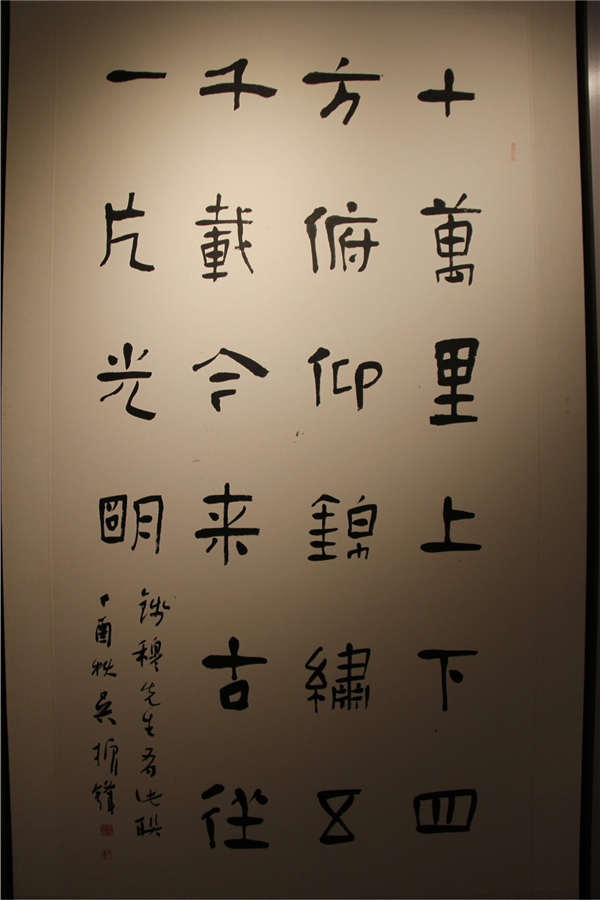 十萬里上下四
方俯仰錦繡五
千載今来古往
一片光明
錢穆先生有此聯
丁酉秋吴振鋒